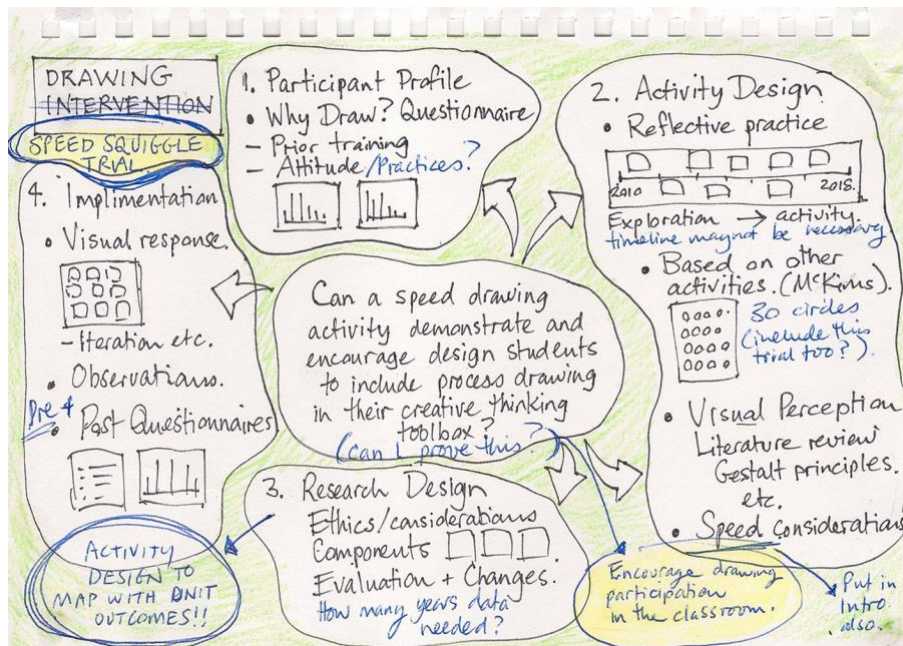 DRAWING
INTERVENTION
SPEED SQUIGGLE
TRIAL
1. Participant Profile
• Why Draw? Questionnaire
- Prior training
- Attitude/Practices?
2. Activity Design
• Reflective practice
2010 2018.
Exploration → activity.
timeline may not be necessary
• Based on other
activities. (McKims).
30 circles
(include this
trial too?).
• Visual Perception
Literature review
Gestalt principles.
etc.
• Speed considerations
Put in
Intro
also.
Can a speed drawing
activity demonstrate and
encourage design students
to include process drawing
in their creative thinking
toolbox?
(can I prove this?)
3. Research Design
Ethics/considerations
Components
Evaluation + Changes.
How many years data
needed?
Encourage drawing
participation
in the classroom.
4. Implimentation
• Visual response.
- Iteration etc.
• Observations.
Pre +
• Post Questionnaires
ACTIVITY
DESIGN TO
MAP WITH UNIT
OUTCOMES!!